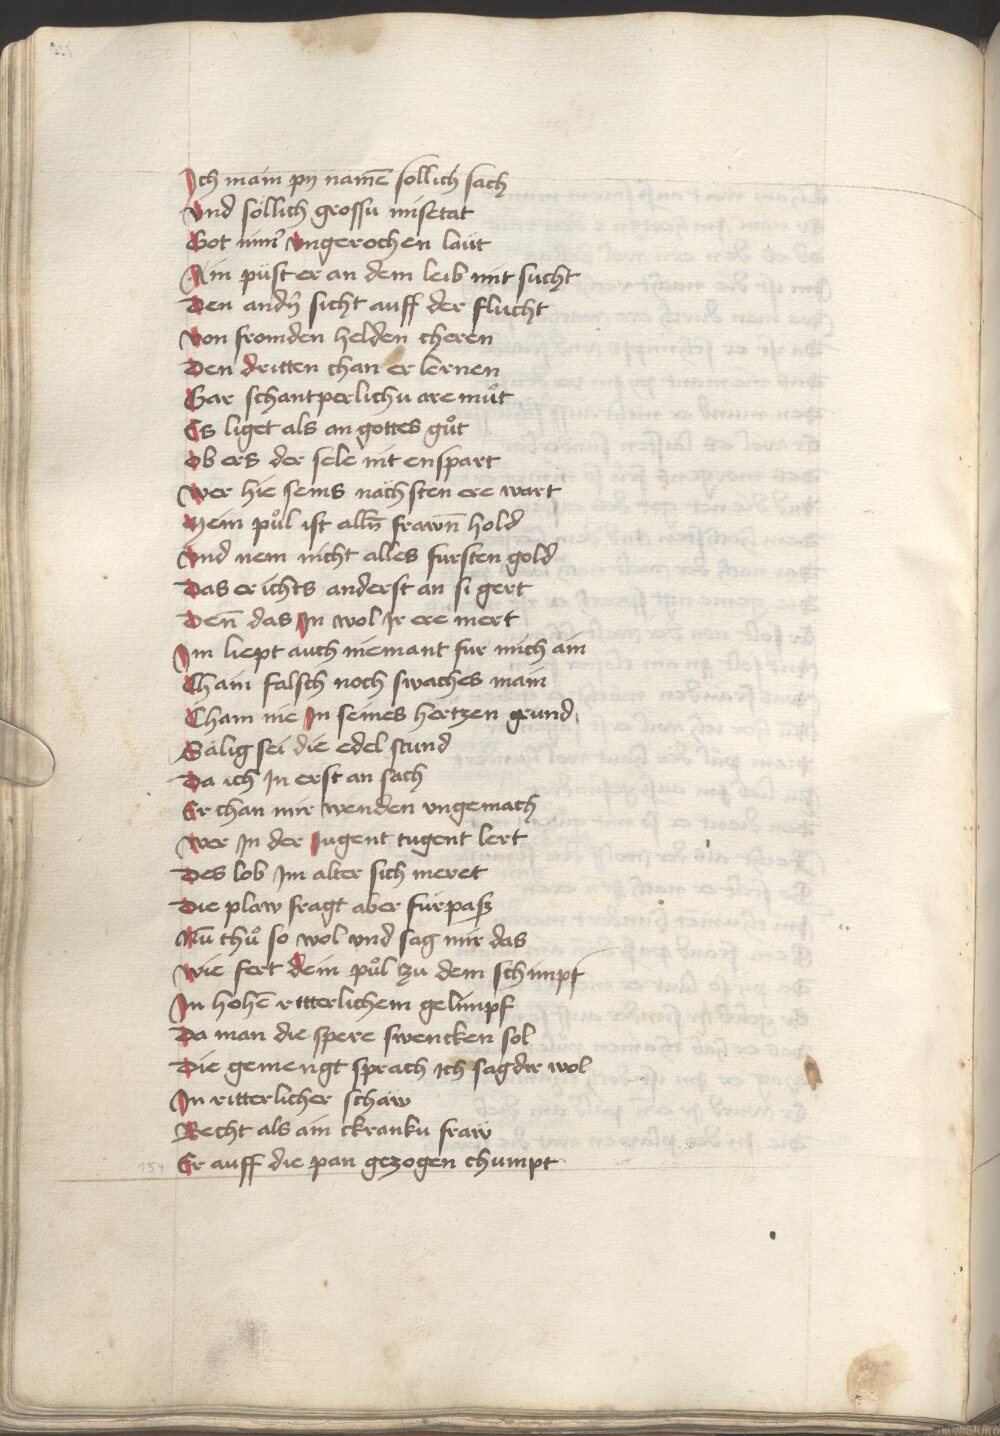 Ich main py namē sollich sach
Vnd söllich grossu misetat
Got nim̄ vngerochen laüt
Ain püst er an dem leib mit sucht
Den andn̄ sicht auff der flucht
Von fromden helden cheren
Den dritten chan er lernen
Gar schantperlichu are můt
Es liget als an gottes gůt
Ob ers der sele nit enspart
Wer hie seins nächsten ere wart
Mein půl ist alln̄ frawn̄ hold
Vnd nem nicht alles fursten gold
Das er ichts anderst an si gert
Den̄ das In wol Ir ere mert
Im liept auch niemant fur mich ain
Chain falsch noch swaches main
Cham nie In seines hertzen grund
Sälig sei die edel stund
Da ich In erst an sach
Er chan mir wenden vngemach
Wer In der Iugent tugent lert
Des lob Im alter sich meret
Die plaw fragt aber fürpaß
Nū thů so wol vnd sag mir das
Wie fert dein půl zu dem schimpf
In hohē ritterlichem gelimpf
Da man die spere swencken sol
Die gemengt sprach ich sag dir wol
In ritterlicher schaw
Recht als ain ckranku fraw
Er auff die pan gezogen chumpt
154